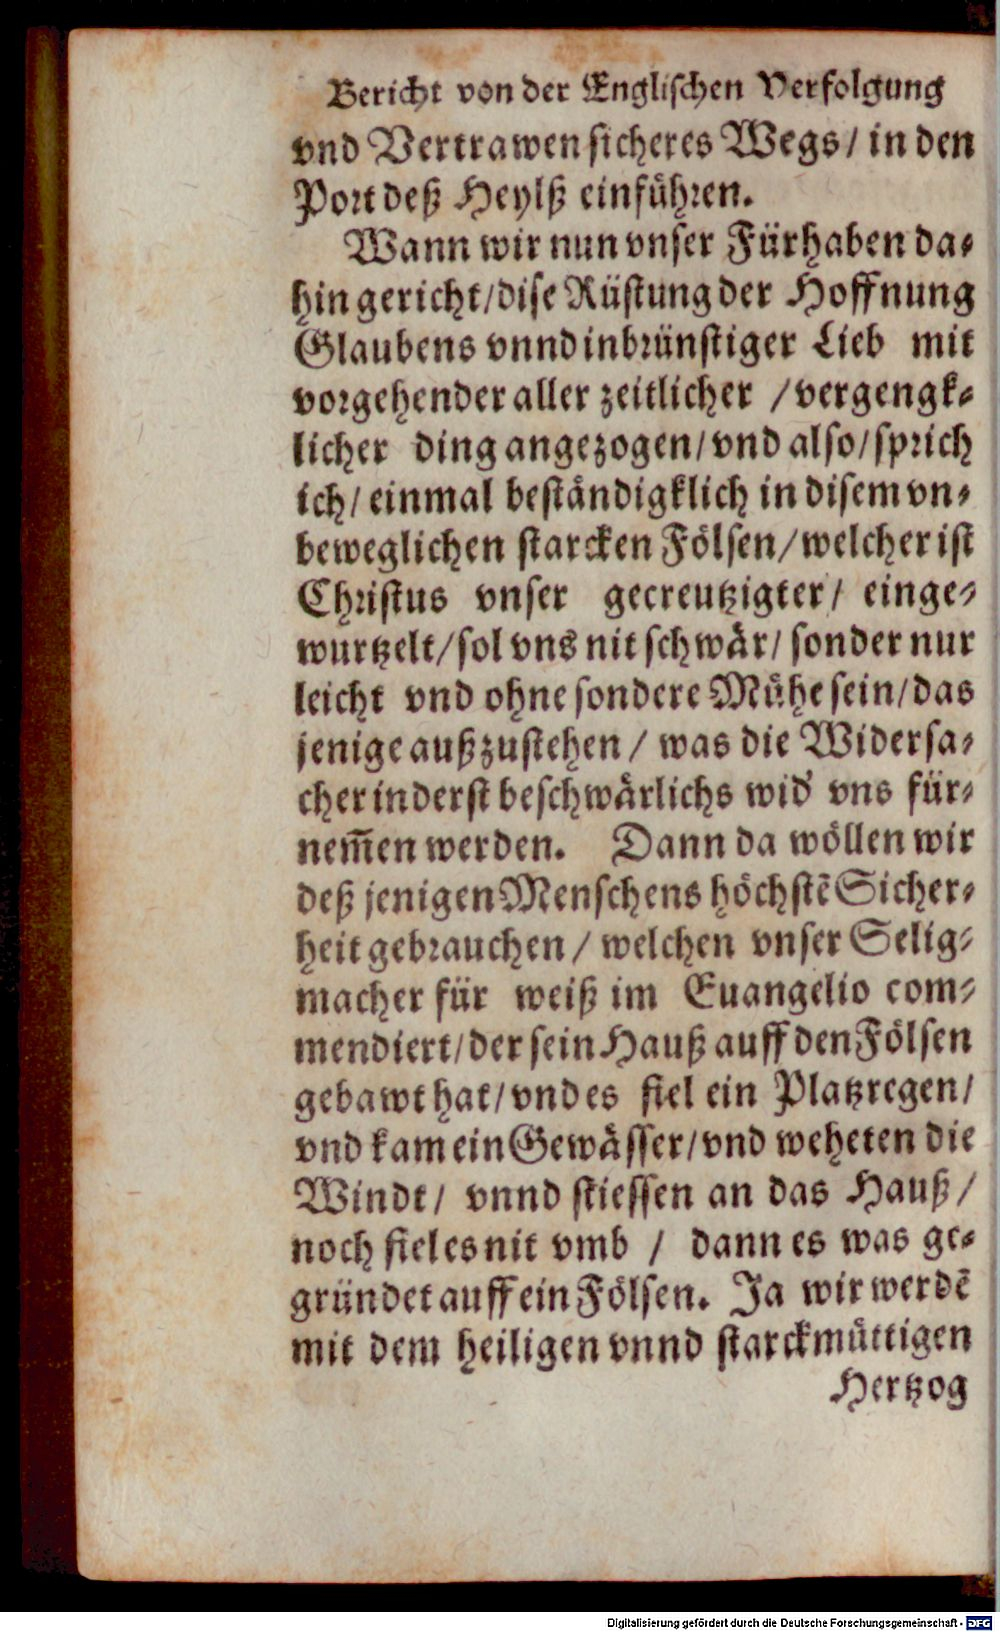 Bericht von der Englischen Verfolgung
vnd Vertrawen sicheres Wegs / in den
Port deß Heylß einführen.
Wann wir nun vnser Fürhaben da-
hin gericht / dise Rüstung der Hoffnung
Glaubens vnnd inbrünstiger Lieb mit
vorgehender aller zeitlicher / vergengk-
licher ding angezogen / vnd also / sprich
ich / einmal beståndigklich in disem vn-
beweglichen starcken Fölsen / welcher ist
Christus vnser gecreutzigter / einge-
wurtzelt / sol vns nit schwår / sonder nur
leicht vnd ohne sondere Mühe sein / das
jenige außzustehen / was die Widersa-
cher inderst beschwårlichs wid' vns für-
nem̃en werden. Dann da wöllen wir
deß jenigen Menschens höchstẽ Sicher-
heit gebrauchen / welchen vnser Selig-
macher für weiß im Euangelio com-
mendiert / der sein Hauß auff den Fölsen
gebawt hat / vnd es fiel ein Platzregen /
vnd kam ein Gewåsser / vnd weheten die
Windt / vnnd stiessen an das Hauß /
noch fiel es nit vmb / dann es was ge-
gründet auff ein Fölsen. Ja wir werdẽ
mit dem heiligen vnnd starckmüttigen
Hertzog
Digitalisierung gefördert durch die Deutsche Forschungsgemeinschaft - DFG